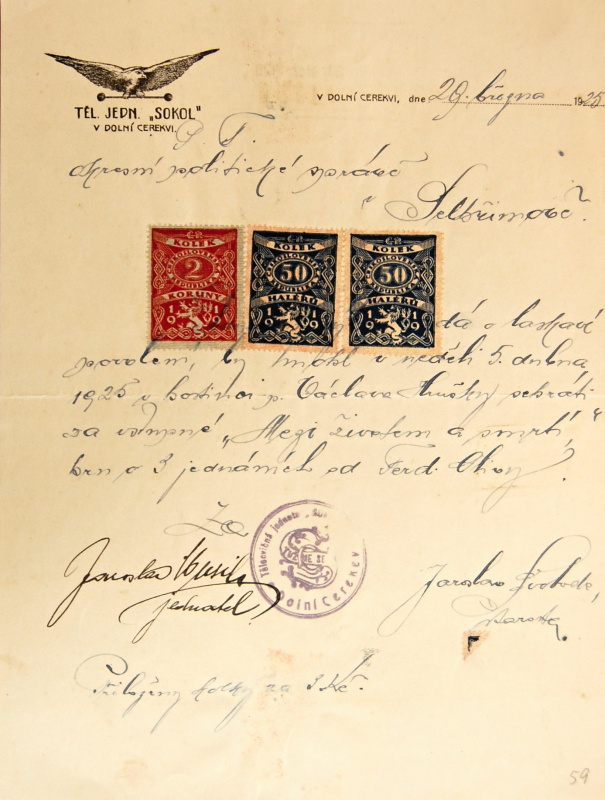 TĚL. JEDN. „SOKOL“
V DOLNÍ CEREKVI.
V DOLNÍ CEREKVI, dne 29. března 1925
P. T.
okresní politické správě
v Pelhřimově.
Č.R. KOLEK
2
KORUNY
1919
Č.R. KOLEK
50
HALÉŘŮ
1919
Č.R. KOLEK
50
HALÉŘŮ
1919
žádá o laskavé
povolení, by mohl v neděli 5. dubna
1925 v hostinci p. Václava Hrušky sehráti
za vstupné „Mezi životem a smrtí,“
hru o 3 jednáních od Ferd. Olivy.
Za
Jaroslav
jednatel
Tělocvičná jednota „
Dolní Cerekev
Jaroslav Svoboda,
starosta.
Přiloženy kolky za 3 Kč.
59